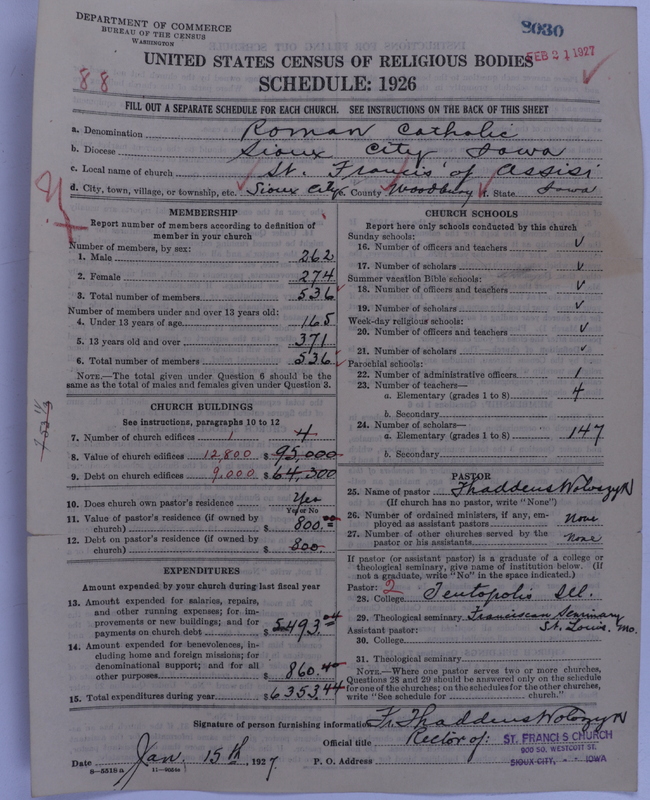 DEPARTMENT OF COMMERCE
BUREAU OF THE CENSUS
WASHINGTON
8030
FEB 21 1927
UNITED STATES CENSUS OF RELIGIOUS BODIES
88
SCHEDULE: 1926
FILL OUT A SEPARATE SCHEDULE FOR EACH CHURCH. SEE INSTRUCTIONS ON THE BACK OF THIS SHEET
a. Denomination Roman Catholic
b. Diocese Sioux City Iowa
c. Local name of church St. Francis of Assisi
d. City, town, village, or township, etc. Sioux City e. County Woodbury f. State Iowa
MEMBERSHIP
Report number of members according to definition of
member in your church
Number of members, by sex:
1. Male 262
2. Female 274
3. Total number of members 536
Number of members under and over 13 years old:
4. Under 13 years of age 165
5. 13 years old and over 371
6. Total number of members 536
NOTE.—The total given under Question 6 should be
same as the total of males and females given under Question 3.
CHURCH BUILDINGS
See instructions, paragraphs 10 to 12
7. Number of church edifices 1 4
8. Value of church edifices 12,800 $ 95,000
9. Debt on church edifices 9,000 $ 64,300
10. Does church own pastor's residence Yes
Yes or No
11. Value of pastor's residence (if owned by
church) $ 800.00
12. Debt on pastor's residence (if owned by
church) $ 800.
EXPENDITURES
Amount expended by your church during last fiscal year
13. Amount expended for salaries, repairs,
and other running expenses; for im-
provements or new buildings; and for
payments on church debt $ 5493.04
14. Amount expended for benevolences, in-
cluding home and foreign missions; for
denominational support; and for all
other purposes $ 860.40
15. Total expenditures during year $ 6353.44
CHURCH SCHOOLS
Report here only schools conducted by this church
Sunday schools:
16. Number of officers and teachers v
17. Number of scholars v
Summer vacation Bible schools:
18. Number of officers and teachers v
19. Number of scholars v
Week-day religious schools:
20. Number of officers and teachers v
21. Number of scholars v
Parochial schools:
22. Number of administrative officers 1
23. Number of teachers—
a. Elementary (grades 1 to 8) 4
b. Secondary
24. Number of scholars—
a. Elementary (grades 1 to 8) 147
b. Secondary
PASTOR
25. Name of pastor Thaddeus Wołoszyk
(If church has no pastor, write "None")
26. Number of ordained ministers, if any, em-
ployed as assistant pastors none
27. Number of other churches served by the
pastor or his assistants none
If pastor (or assistant pastor) is a graduate of a college or
theological seminary, give name of institution below. (If
not a graduate, write "No" in the space indicated.)
Pastor: 2
28. College Teutopolis Ill.
29. Theological seminary Franciscan Seminary
Assistant pastor: St. Louis, Mo.
30. College
31. Theological seminary
NOTE.—Where one pastor serves two or more churches,
Questions 28 and 29 should be answered only on the schedule
for one of the churches; on the schedules for the other churches,
write "See schedule for church."
Signature of person furnishing information Fr. Thaddeus Wołoszyk
Official title Rector of: ST. FRANCIS CHURCH
Date Jan. 15th, 1927. P. O. Address 900 SO. WESTCOTT ST.
SIOUX CITY, - - IOWA
8—5518 a